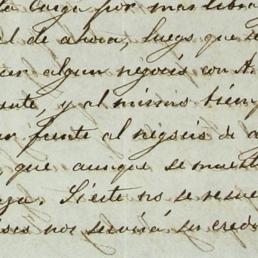 carga por mas libra
l de ahora, luego que se
ar algun negocio con A.
ente, y al mismo tiemp
n frente al negocio de a
, que aunque se muest
ga. Si éste no se resue
nos servirá su credi